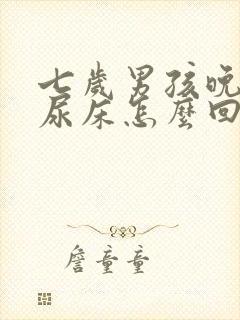 七歲男孩晚
尿床怎麼回
詹童童